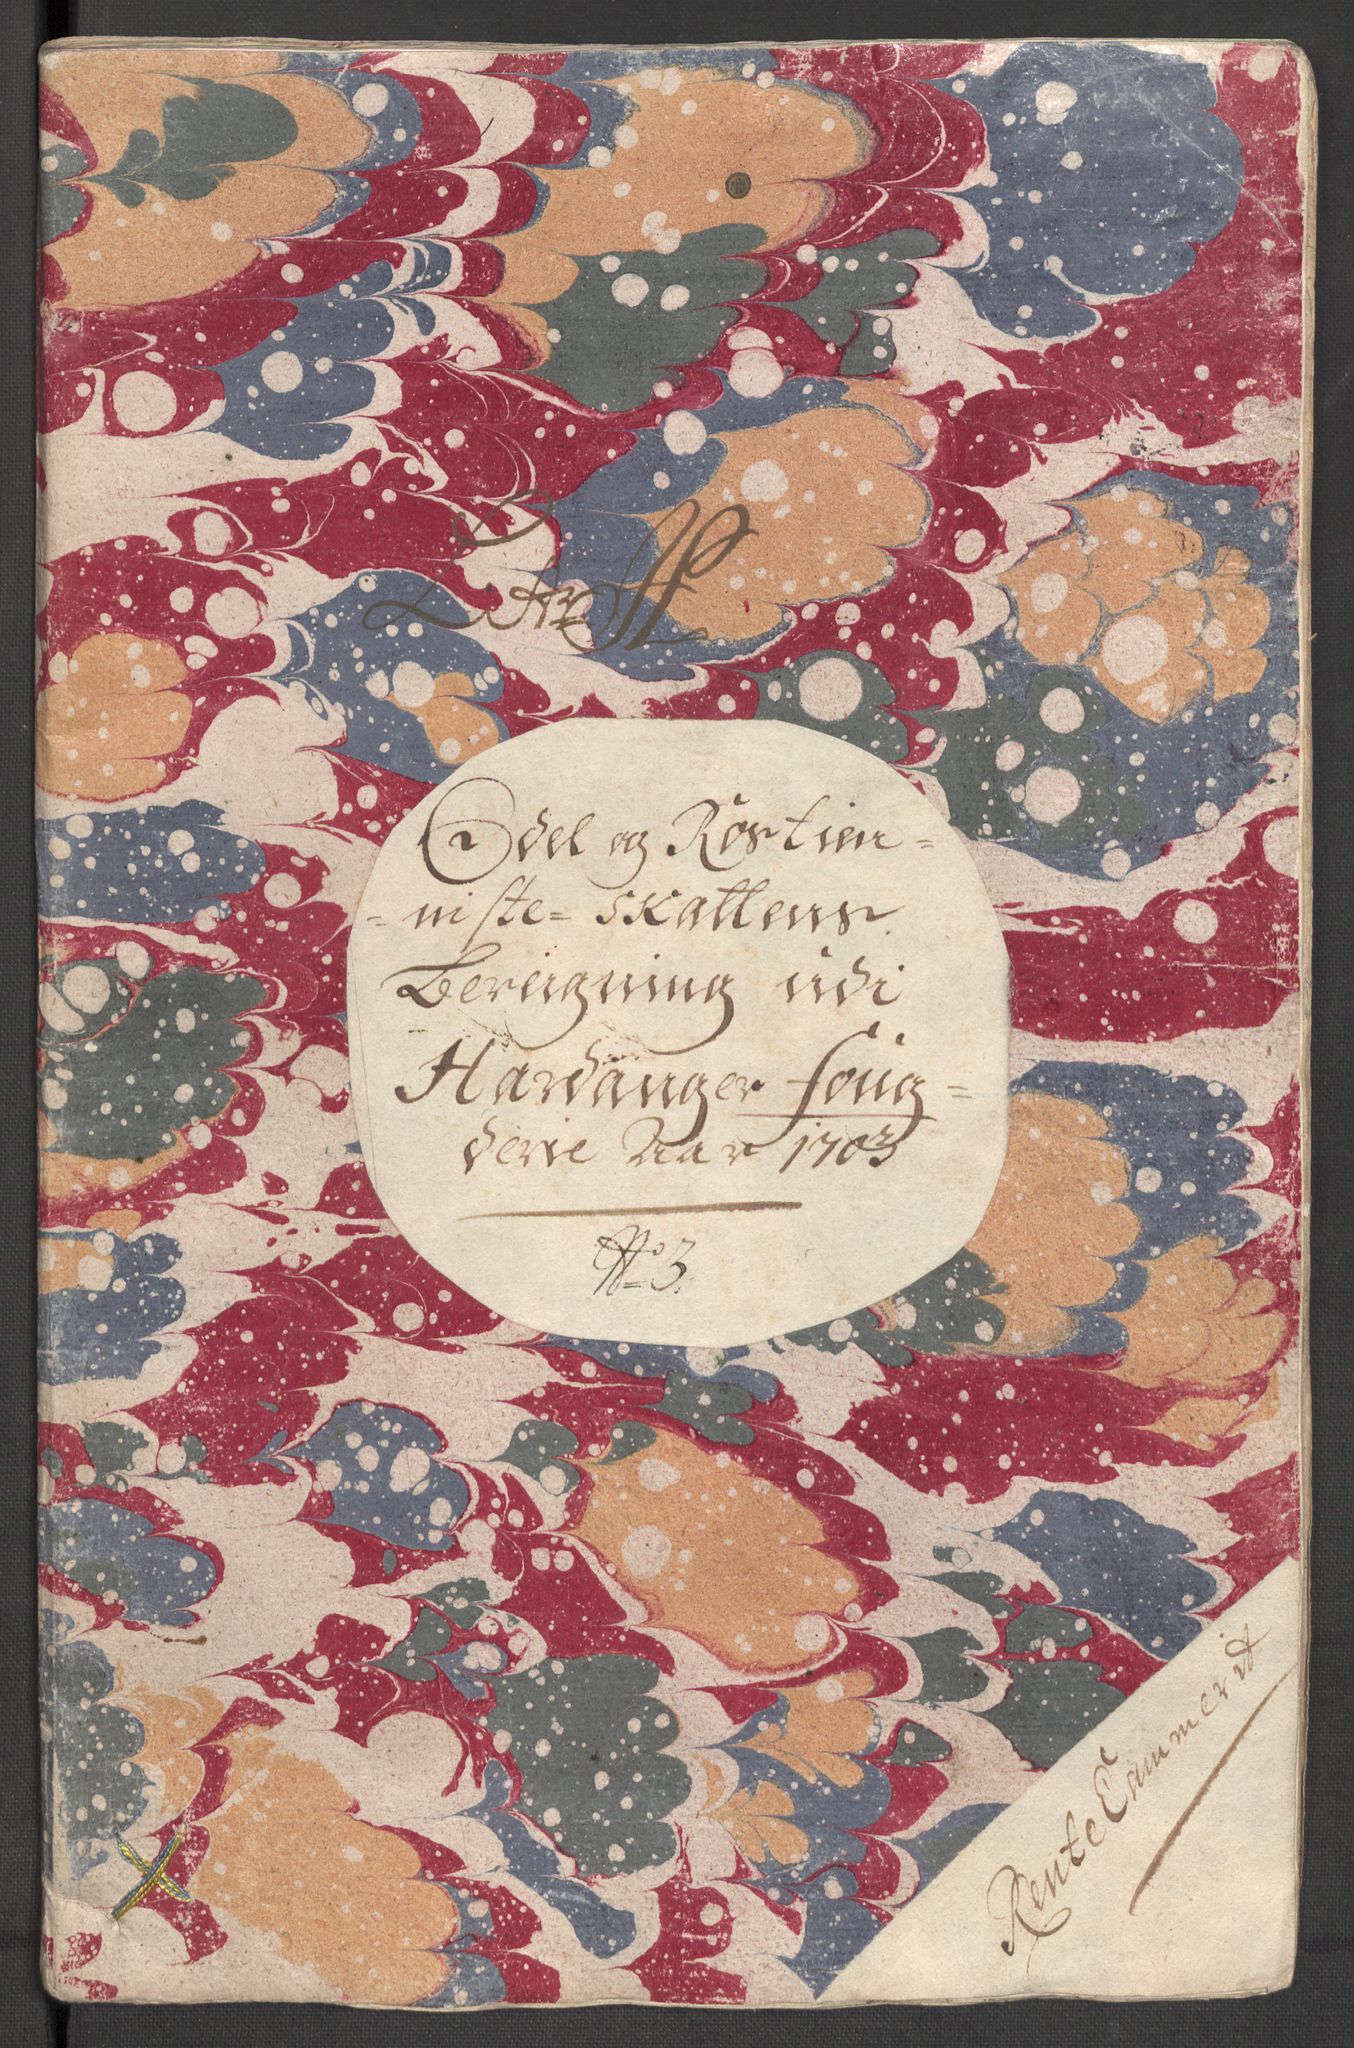 Odel og Rostien=
=niste= Skattens
Bereigning udi
Hardanger foug=
derie Aar 1703
No 3.
Rente Cammerit